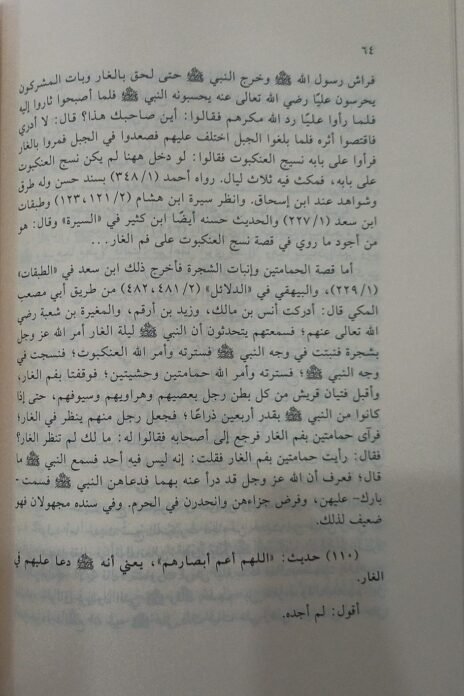 ٦٤
فراش رسول الله ﷺ وخرج النبي ﷺ حتى لحق بالغار وبات المشركون
يحرسون عليًا رضي الله تعالى عنه يحسبونه النبي ﷺ فلما أصبحوا ثاروا إليه
فلما رأوا عليًا رد الله مكرهم فقالوا: أين صاحبك هذا؟ قال: لا أدري
فاقتصوا أثره فلما بلغوا الجبل اختلف عليهم فصعدوا في الجبل فمروا بالغار
فرأوا على بابه نسيج العنكبوت فقالوا: لو دخل ههنا لم يكن نسج العنكبوت
على بابه، فمكث فيه ثلاث ليال. رواه أحمد (٣٤٨/١) بسند حسن وله طرق
وشواهد عند ابن إسحاق. وانظر سيرة ابن هشام (١٢١/٢، ١٢٣) وطبقات
ابن سعد (٢٢٧/١) والحديث حسنه أيضًا ابن كثير في «السيرة» وقال: هو
من أجود ما روي في قصة نسج العنكبوت على فم الغار...
أما قصة الحمامتين وإنبات الشجرة فأخرج ذلك ابن سعد في «الطبقات»
(٢٢٩/١)، والبيهقي في «الدلائل» (٤٨١/٢، ٤٨٢) من طريق أبي مصعب
المكي قال: أدركت أنس بن مالك، وزيد بن أرقم، والمغيرة بن شعبة رضي
الله تعالى عنهم؛ فسمعتهم يتحدثون أن النبي ﷺ ليلة الغار أمر الله عز وجل
بشجرة فنبتت في وجه النبي ﷺ فسترته وأمر الله العنكبوت؛ فنسجت في
وجه النبي ﷺ؛ فسترته وأمر الله حمامتين وحشيتين؛ فوقفتا بفم الغار،
وأقبل فتيان قريش من كل بطن رجل بعصيهم وهراويهم وسيوفهم، حتى إذا
كانوا من النبي ﷺ بقدر أربعين ذراعًا؛ فجعل رجل منهم ينظر في الغار؛
فرأى حمامتين بفم الغار فرجع إلى أصحابه فقالوا له: ما لك لم تنظر الغار؟
فقال: رأيت حمامتين بفم الغار فقلت: إنه ليس فيه أحد فسمع النبي ﷺ ما
قال؛ فعرف أن الله عز وجل قد درأ عنه بهما فدعاهن النبي ﷺ فسمت-
بارك- عليهن، وفرض جزاءهن وانحدرن في الحرم. وفي سنده مجهولان فهو
ضعيف لذلك.
(١١٠) حديث: «اللهم أعم أبصارهم»، يعني أنه ﷺ دعا عليهم في
الغار.
أقول: لم أجده.